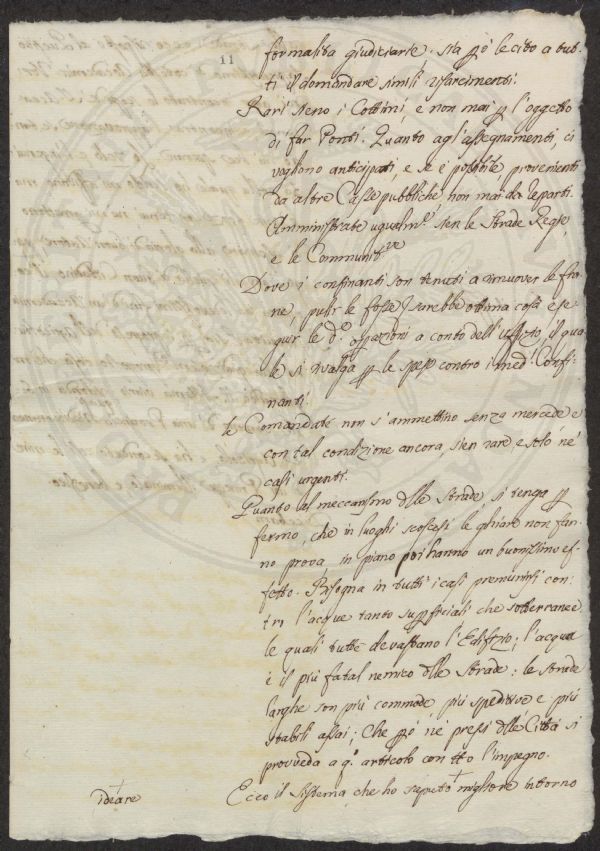 11
formalità giudiciarie; sia pò lecito a tut-
ti il domandare simili rifarcimenti.
Rari sieno i Cottimi, e non mai p l'oggetto
di far Ponti. Quanto agl'assegnamenti, ci
vogliono anticipati, e se è possibile, provenienti
da altre Casse pubbliche, non mai da reparti.
Amministrate ugualm.e sien le Strade Regie,
e le Communit.ve
Dove i confinanti son tenuti a rimuover le fra-
ne, pulir le fosse, sarebbe ottima cosa ese-
guir le d.e opazioni a conto dell'uffizio, il qua-
le si rivalga p le spese contro i med.i Confi-
nanti.
Le Comandate non s'ammettino senza mercede e
con tal condizione ancora, sien rare, e solo ne'
casi urgenti.
Quanto al meccanismo dlle strade si tenga p
fermo, che in luoghi scoscesi le ghiare non fan-
no prova, in piano poi hanno un buonissimo ef-
fetto. Bisogna in tutti i casi premunirsi con-
tro l'acque tanto supficiali che sotterranee
le quali tutte devastano l'Edifizio; l'acqua
è il più fatal nemico dlle strade: le strade
larghe son più commode, più speditive e più
stabili assai; Che pò ne' pressi dlle Città si
provveda a q.o articolo con tto l'impegno.
Ecco il sistema, che ho saputo + migliore intorno
+ ideare